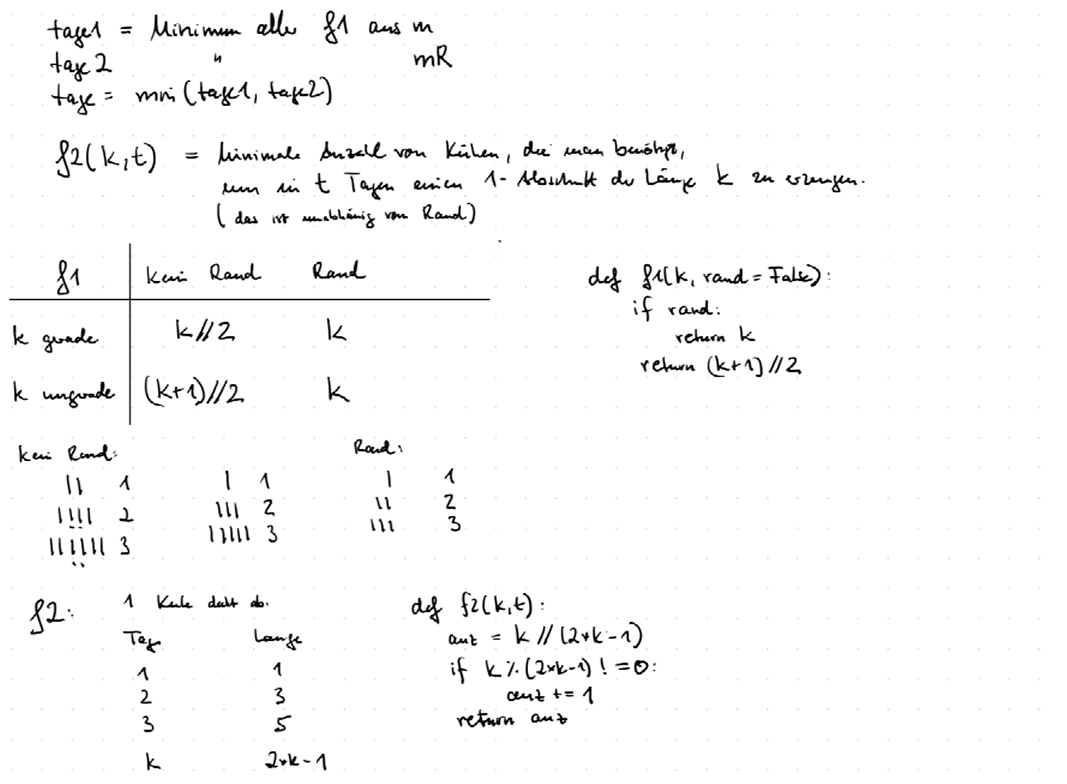 tage1 = Minimum aller f1 aus m
tage2 " mR
tage = min(tage1, tage2)
f2(k,t) = minimale Anzahl von Kühen, die man benötigt,
um in t Tagen einen 1-Abschnitt der Länge k zu erzeugen.
(das ist unabhänig von Rand)
f1 kein Rand Rand
k gerade k//2 k
k ungerade (k+1)//2 k
def f1(k, rand=False):
if rand:
return k
return (k+1)//2
kein Rand:
|| 1 | 1
|||| 2 ||| 2
|||||| 3 ||||| 3
Rand:
| 1
|| 2
||| 3
f2: 1 Kuh deckt ab:
Tag Länge
1 1
2 3
3 5
k 2*k-1
def f2(k,t):
anz = k//(2*k-1)
if k%(2*k-1) != 0:
anz += 1
return anz